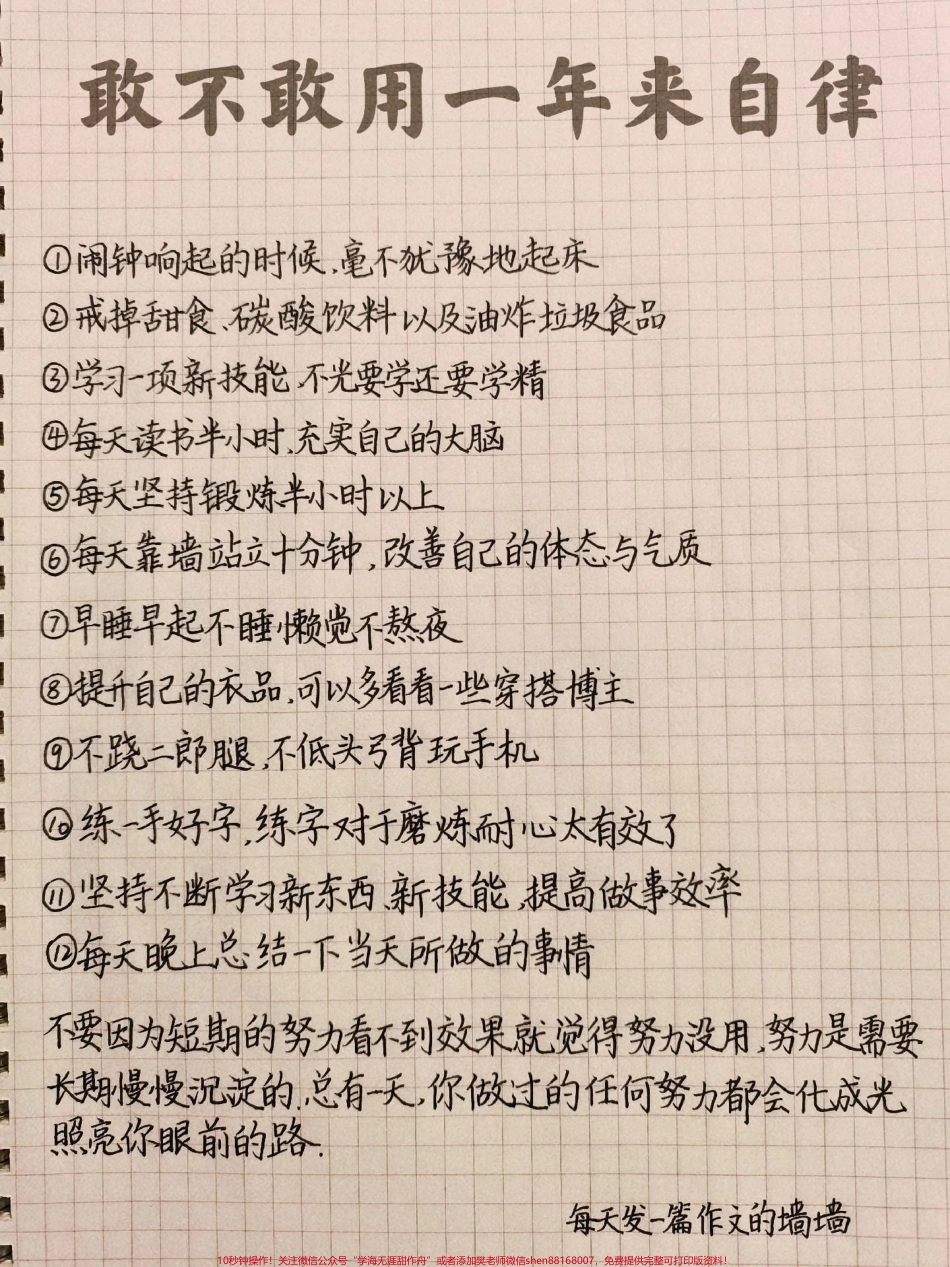 敢不敢用一年来自律
①闹钟响起的时候,毫不犹豫地起床
②戒掉甜食、碳酸饮料以及油炸垃圾食品
③学习一项新技能,不光要学还要学精
④每天读书半小时,充实自己的大脑
⑤每天坚持锻炼半小时以上
⑥每天靠墙站立十分钟,改善自己的体态与气质
⑦早睡早起不睡懒觉不熬夜
⑧提升自己的衣品,可以多看看一些穿搭博主
⑨不跷二郎腿,不低头弓背玩手机
⑩练一手好字,练字对于磨炼耐心太有效了
⑪坚持不断学习新东西、新技能,提高做事效率
⑫每天晚上总结一下当天所做的事情
不要因为短期的努力看不到效果就觉得努力没用,努力是需要
长期慢慢沉淀的.总有一天,你做过的任何努力都会化成光
照亮你眼前的路.
每天发一篇作文的墙墙
10秒钟操作!关注微信公众号“学海无涯甜作舟”或者添加樊老师微信shen88168007,免费提供完整可打印版资料!